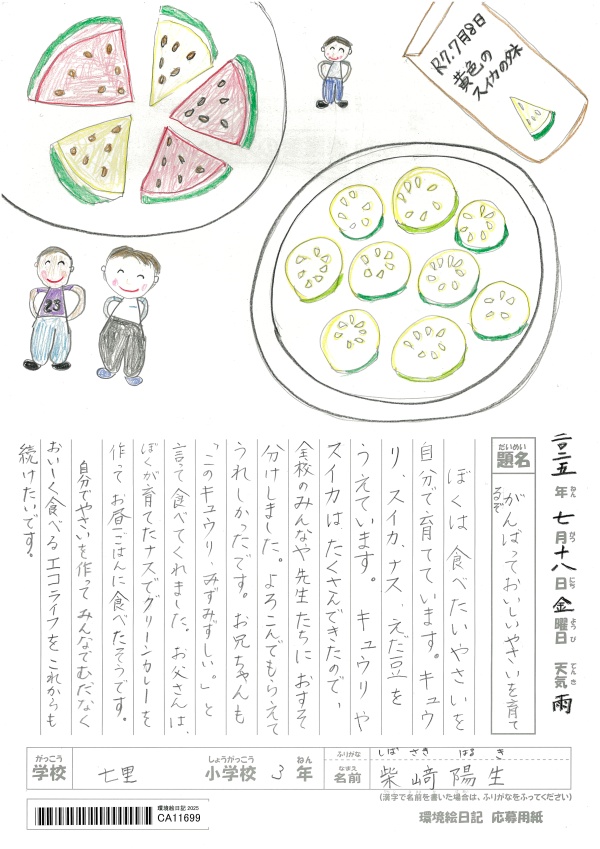 R7.7月8日
黄色の
スイカのタネ
23
二〇二五年 七月十八日 金曜日 天気 雨
ねん がつ にち ようび てんき
だいめい
題名
がんばっておいしいやさいを育て
るぞ
ぼくは、食べたいやさいを
自分で育てています。キュウ
リ、スイカ、ナス、えだ豆を
うえています。キュウリや
スイカは、たくさんできたので、
全校のみんなや先生たちにおすそ
分けしました。よろこんでもらえて
うれしかったです。お兄ちゃんも
「このキュウリ、みずみずしい。」と
言って食べてくれました。お父さんは、
ぼくが育てたナスでグリーンカレーを
作ってお昼ごはんに食べたそうです。
自分でやさいを作ってみんなでむだなく
おいしく食べるエコライフをこれからも
続けたいです。
がっこう しょうがっこう ねん ふりがな しばさき はるき
学校 七里 小学校 3年 なまえ 名前 柴﨑陽生
(漢字で名前を書いた場合は、ふりがなをふってください)
環境絵日記 2025
CA11699
環境絵日記 応募用紙